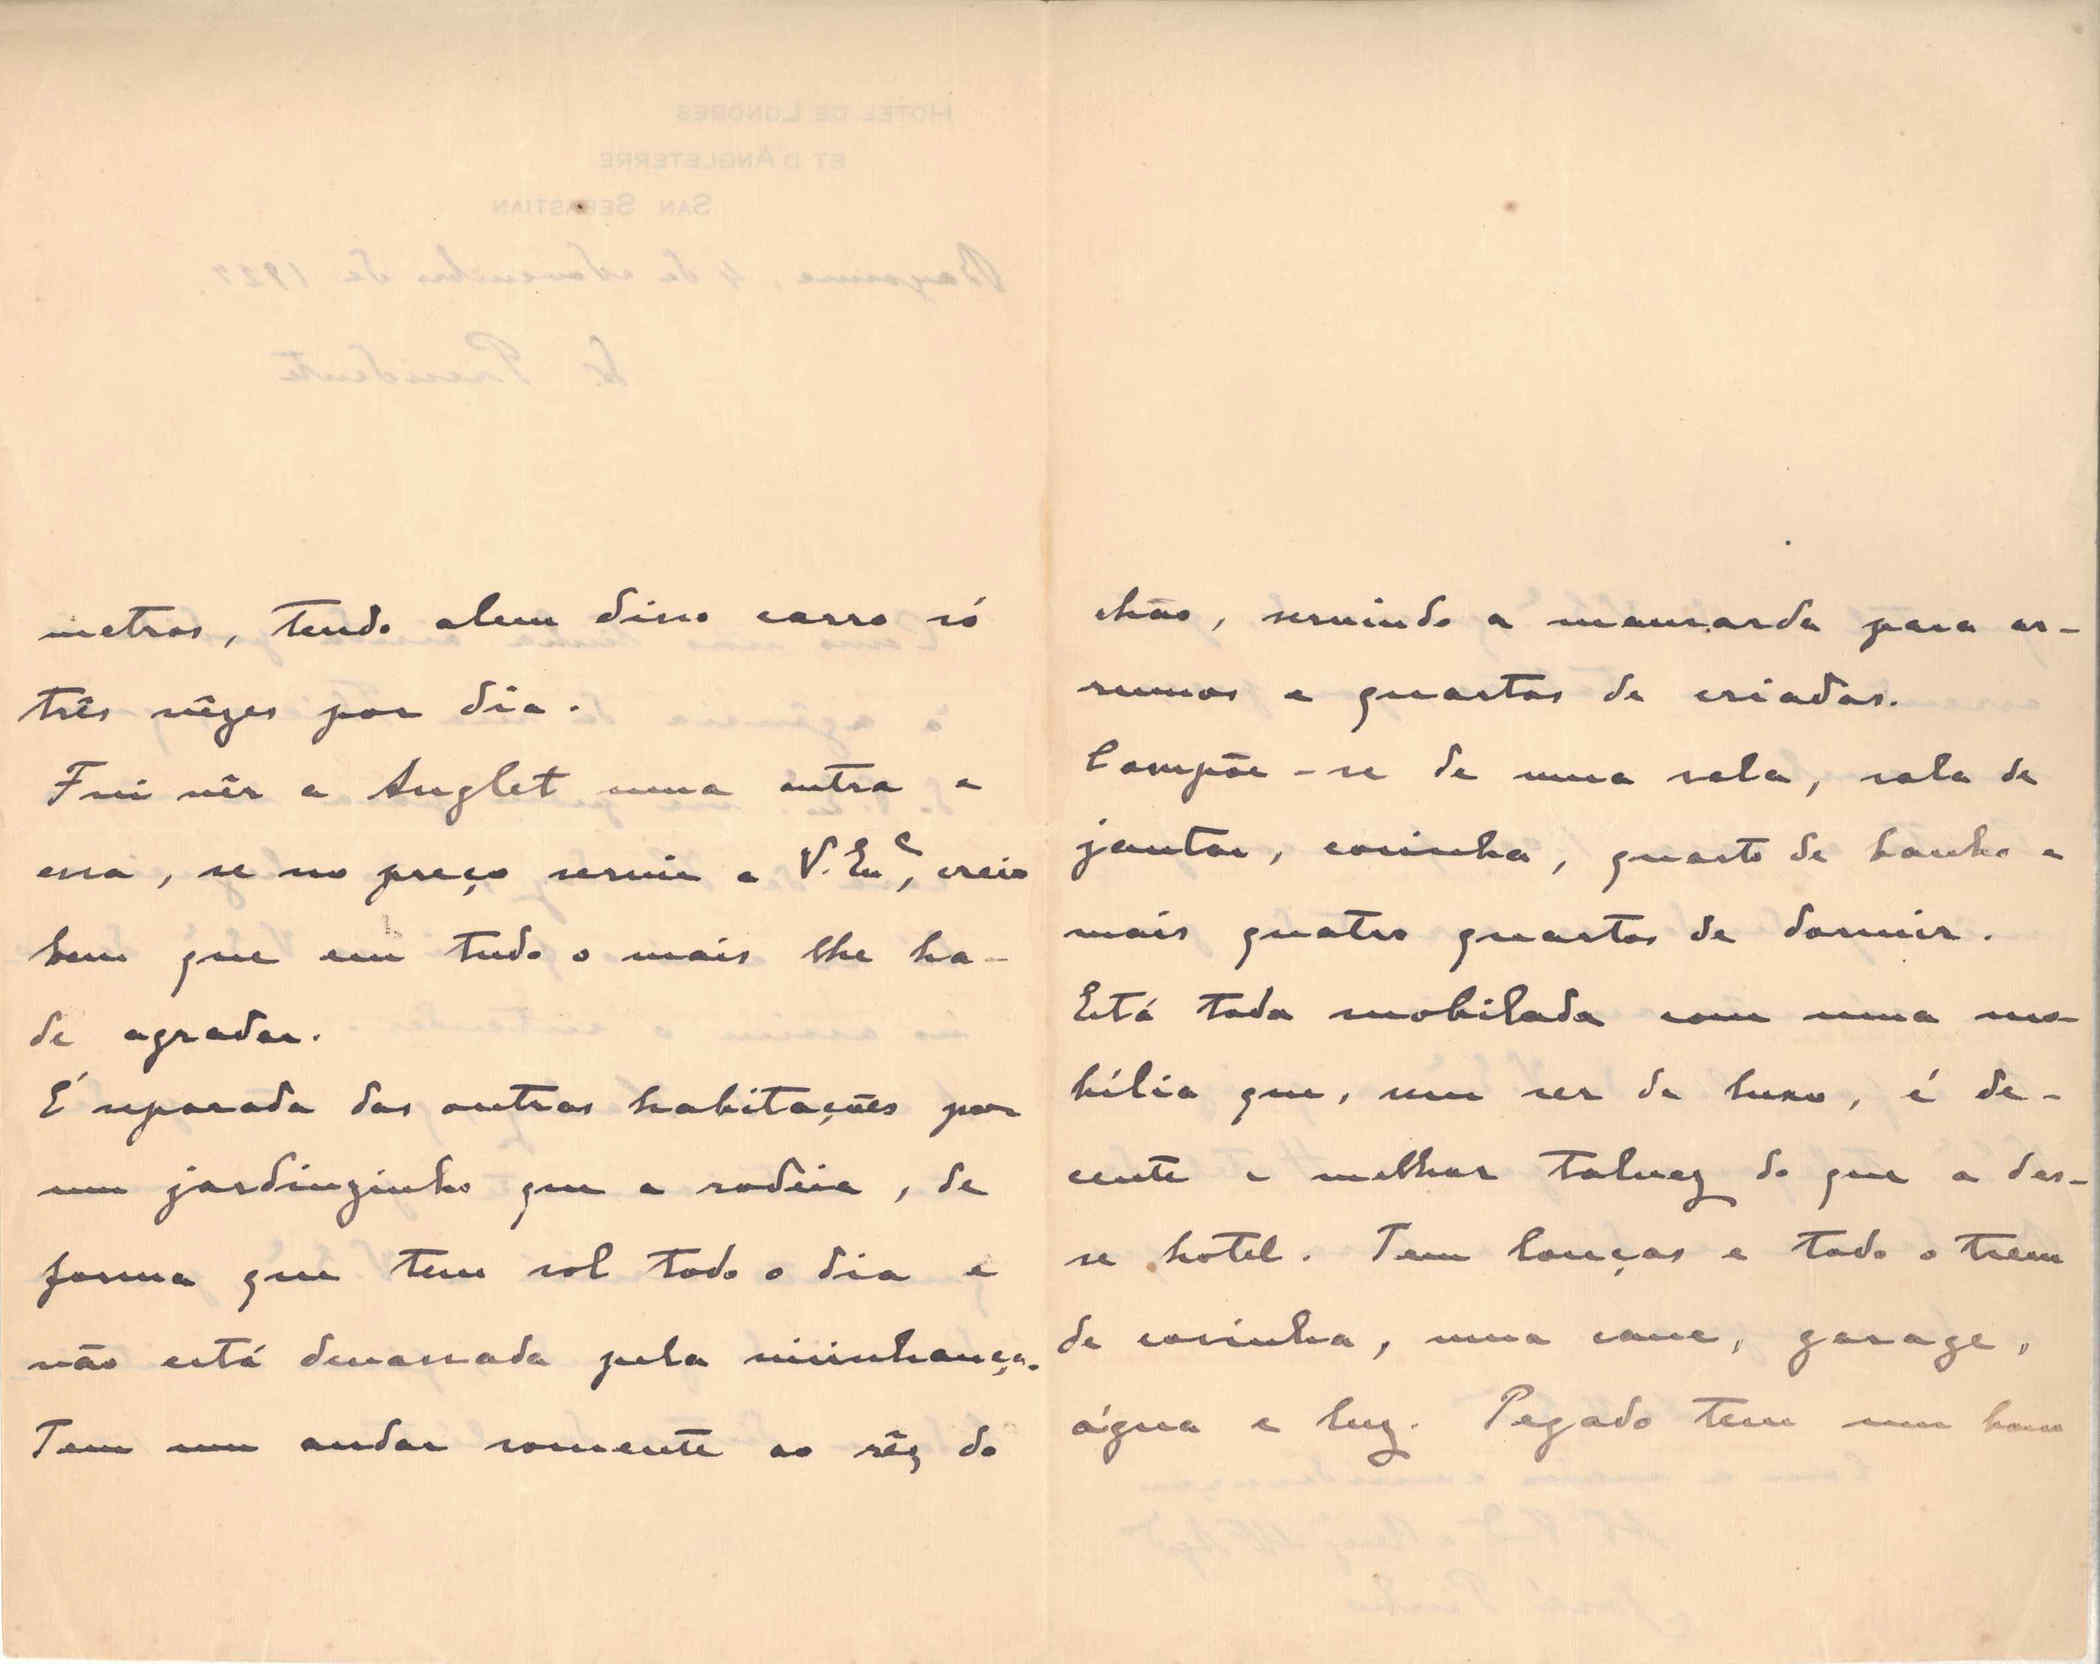 metros, tendo alem disso carro só
três vêzes por dia.
Fui vêr a Anglet uma outra e
essa, se no preço servir a V. Exª, creio
bem que em tudo o mais lhe ha-
de agradar.
É separada das outras habitações por
um jardinzinho que a rodeia, de
forma que tem sol todo o dia e
não está devassada pela visinhança.
Tem um andar somente ao rêz do
chão, servindo a mansarda para ar-
rumos e quartos de criadas.
Compõe-se de uma sala, sala de
jantar, cosinha, quarto de banho e
mais quatro quartos de dormir.
Está toda mobilada com uma mo-
bília que, sem ser de luxo, é de-
cente e melhor talvez do que a des-
se hotel. Tem louças e todo o trem
de cosinha, uma cave, garage,
água e luz. Pegado tem um bom
HOTEL DE LONDRES
ET D'ANGLETERRE
SAN SEBASTIAN
Bayonne, 4 de Novembro de 1927.
Sr. Presidente